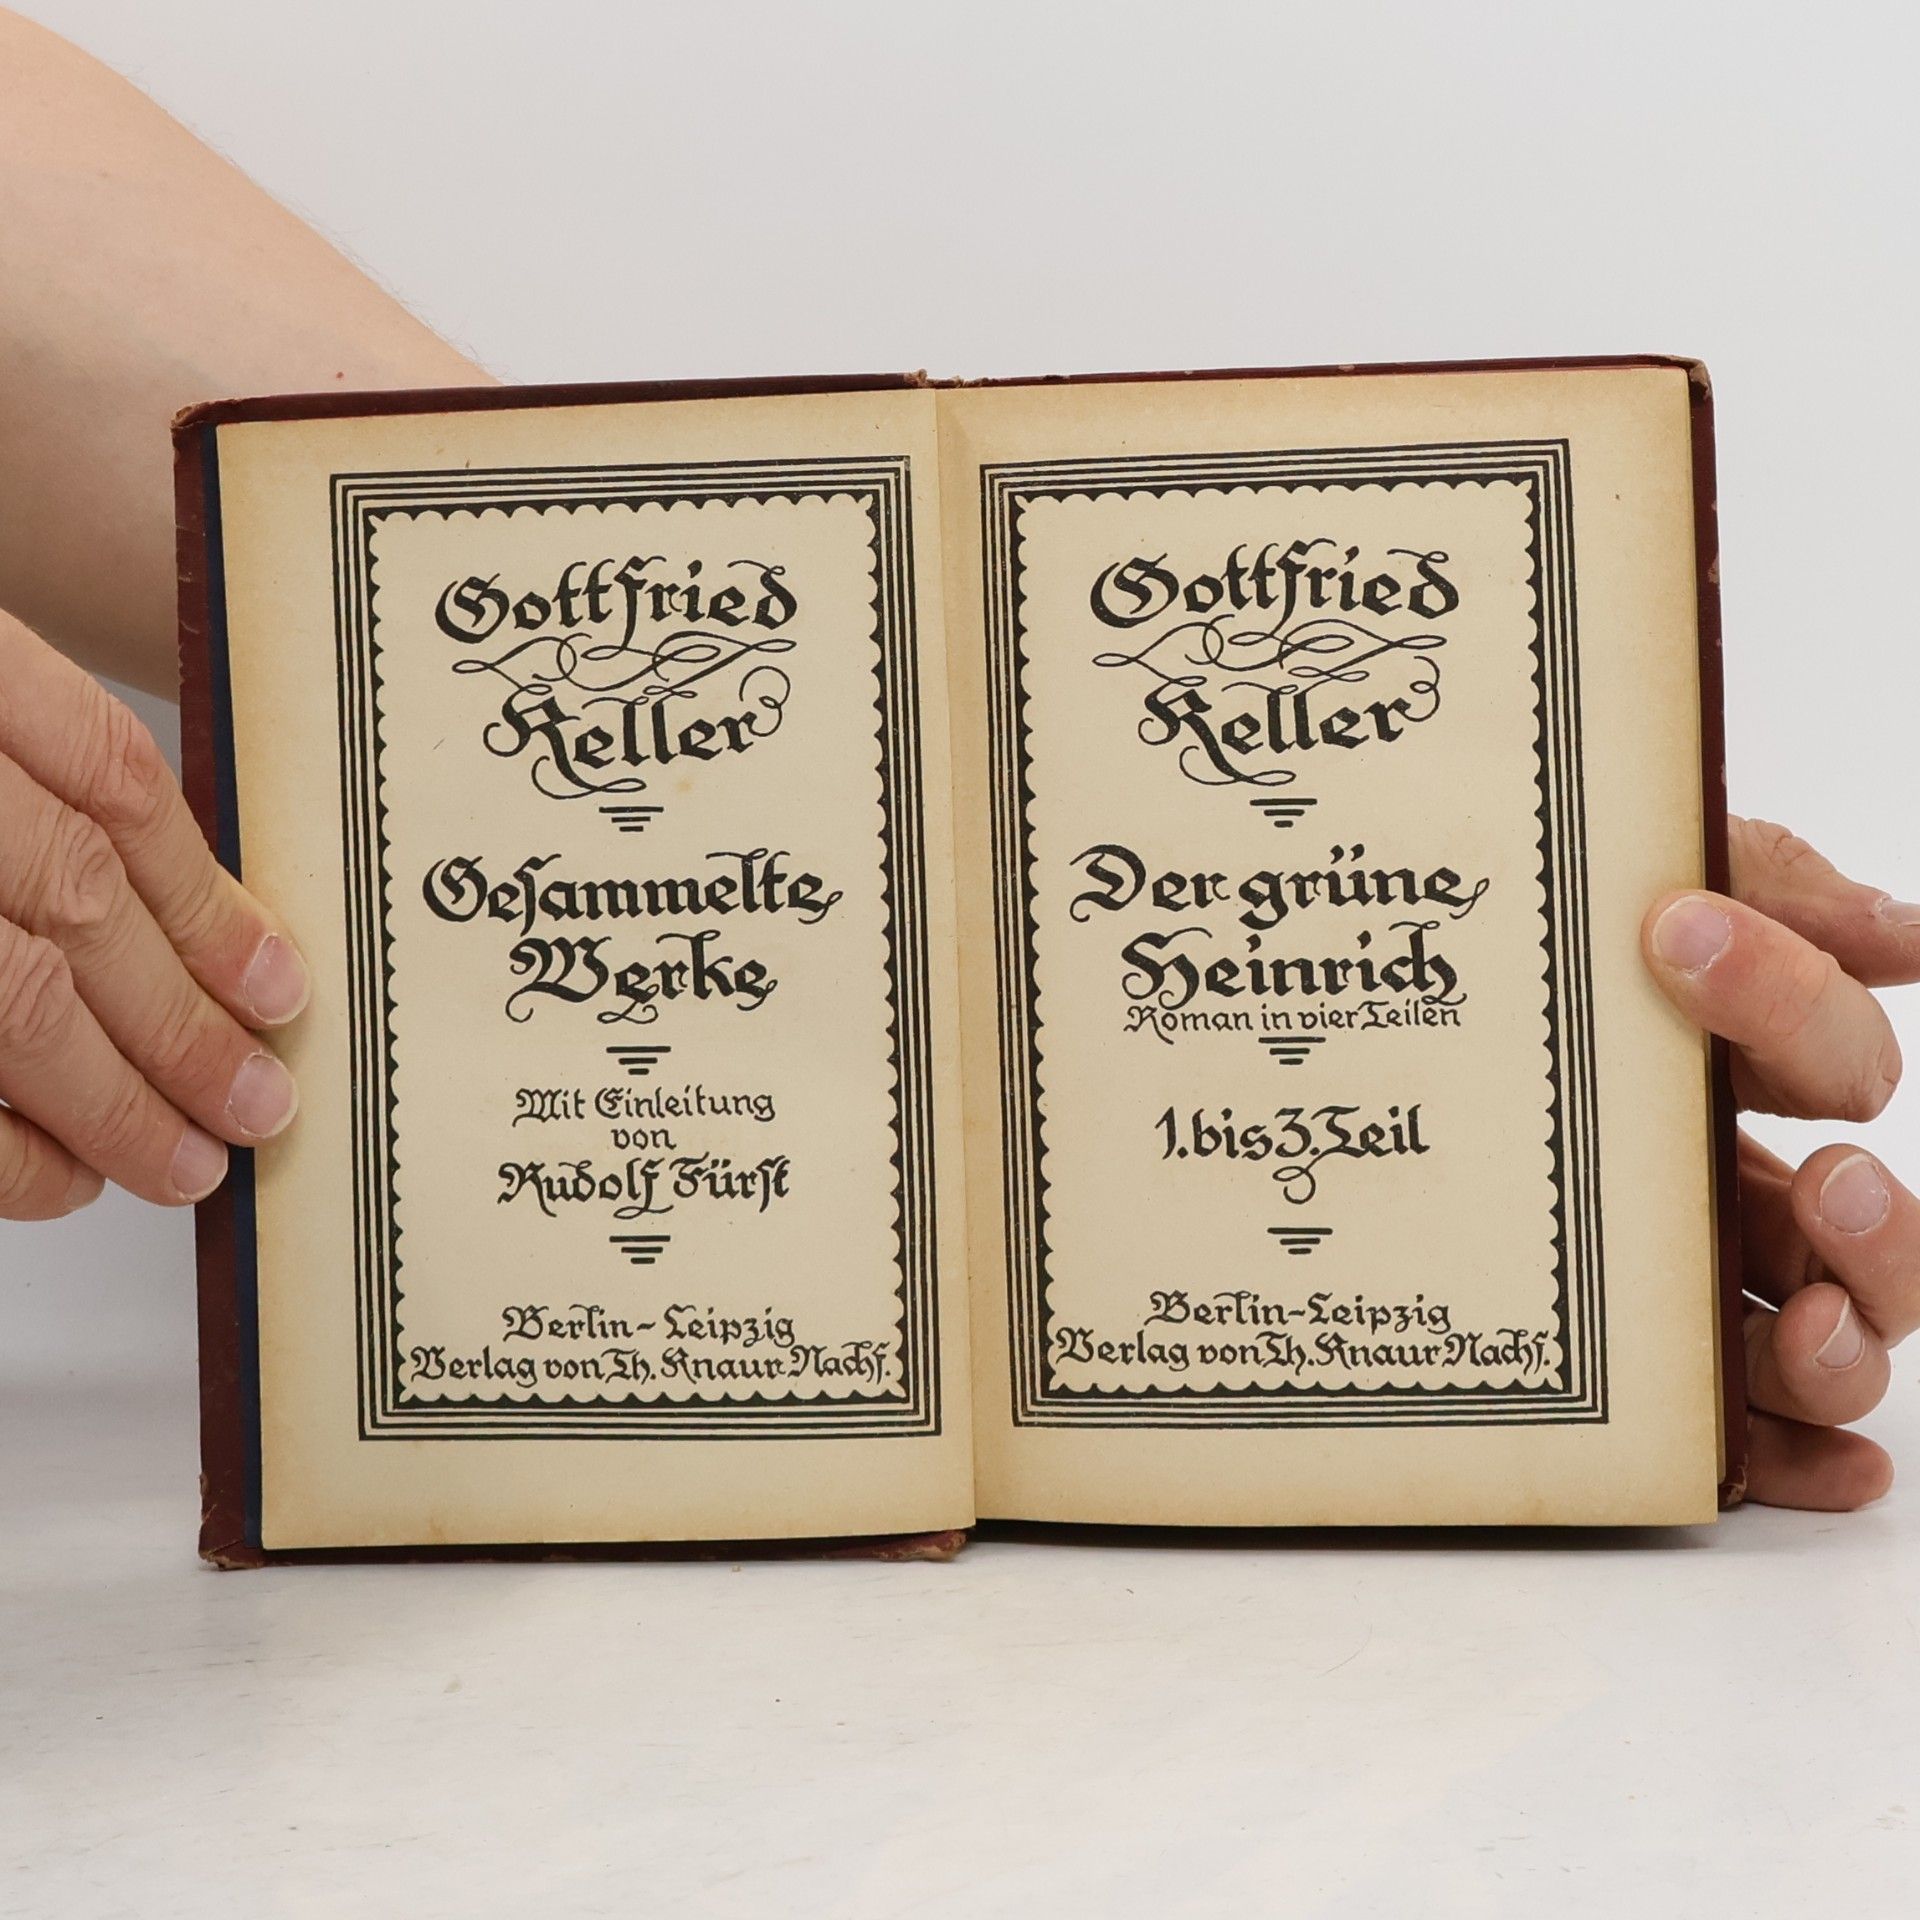 Gottfried
Keller
Gesammelte
Werke
Mit Einleitung
von
Rudolf Fürst
Berlin-Leipzig
Verlag von Th. Knaur Nachf.
Gottfried
Keller
Der grüne
Heinrich
Roman in vier Teilen
1. bis 3. Teil
Berlin-Leipzig
Verlag von Th. Knaur Nachf.